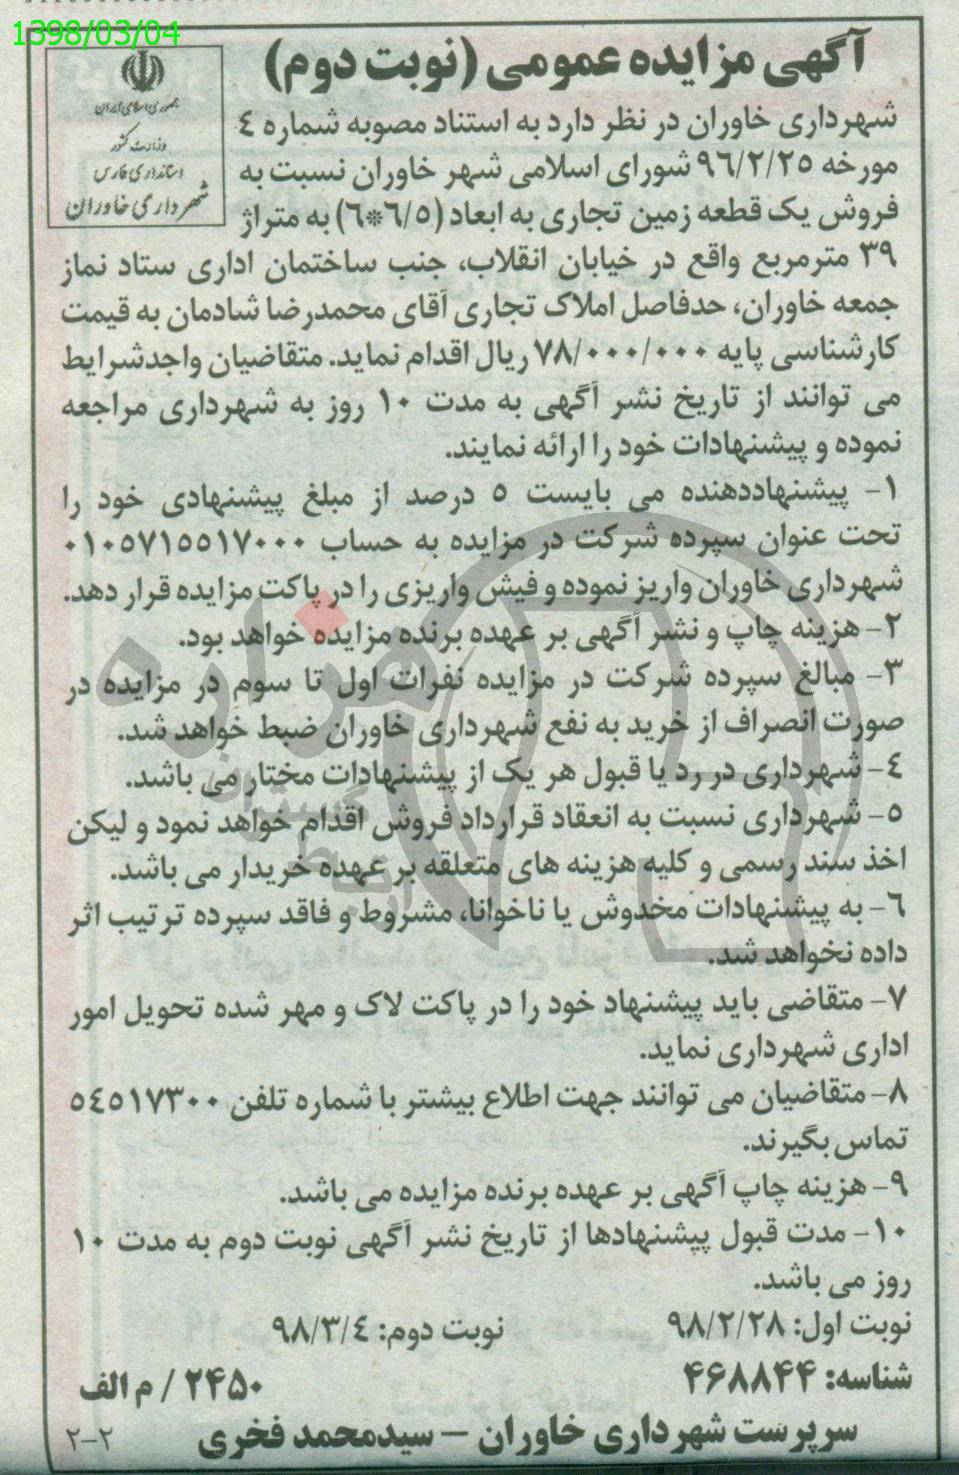 1398/03/04
آگهی مزایده عمومی (نوبت دوم)
جمهوری اسلامی ایران
وزارت کشور
استانداری فارس
شهرداری خاوران
شهرداری خاوران در نظر دارد به استناد مصوبه شماره ٤
مورخه ٩٦/٢/٢٥ شورای اسلامی شهر خاوران نسبت به
فروش یک قطعه زمین تجاری به ابعاد (٦/٥*٦) به متراژ
٣٩ مترمربع واقع در خیابان انقلاب، جنب ساختمان اداری ستاد نماز
جمعه خاوران، حدفاصل املاک تجاری آقای محمدرضا شادمان به قیمت
کارشناسی پایه ٧٨/٠٠٠/٠٠٠ ریال اقدام نماید. متقاضیان واجدشرایط
می توانند از تاریخ نشر آگهی به مدت ١٠ روز به شهرداری مراجعه
نموده و پیشنهادات خود را ارائه نمایند.
١- پیشنهاددهنده می بایست ٥ درصد از مبلغ پیشنهادی خود را
تحت عنوان سپرده شرکت در مزایده به حساب ٠١٠٥٧١٥٥١٧٠٠٠
شهرداری خاوران واریز نموده و فیش واریزی را در پاکت مزایده قرار دهد.
٢- هزینه چاپ و نشر آگهی بر عهده برنده مزایده خواهد بود.
٣- مبالغ سپرده شرکت در مزایده نفرات اول تا سوم در مزایده در
صورت انصراف از خرید به نفع شهرداری خاوران ضبط خواهد شد.
٤- شهرداری در رد یا قبول هر یک از پیشنهادات مختار می باشد.
٥- شهرداری نسبت به انعقاد قرارداد فروش اقدام خواهد نمود و لیکن
اخذ سند رسمی و کلیه هزینه های متعلقه بر عهده خریدار می باشد.
٦- به پیشنهادات مخدوش یا ناخوانا، مشروط و فاقد سپرده ترتیب اثر
داده نخواهد شد.
٧- متقاضی باید پیشنهاد خود را در پاکت لاک و مهر شده تحویل امور
اداری شهرداری نماید.
٨- متقاضیان می توانند جهت اطلاع بیشتر با شماره تلفن ٥٤٥١٧٣٠٠
تماس بگیرند.
٩- هزینه چاپ آگهی بر عهده برنده مزایده می باشد.
١٠- مدت قبول پیشنهادها از تاریخ نشر آگهی نوبت دوم به مدت ١٠
روز می باشد.
نوبت اول: ٩٨/٢/٢٨ نوبت دوم: ٩٨/٣/٤
شناسه: ۴۶۸۸۴۴ ۲۴۵۰ / م الف
سرپرست شهرداری خاوران - سیدمحمد فخری
۲-۲